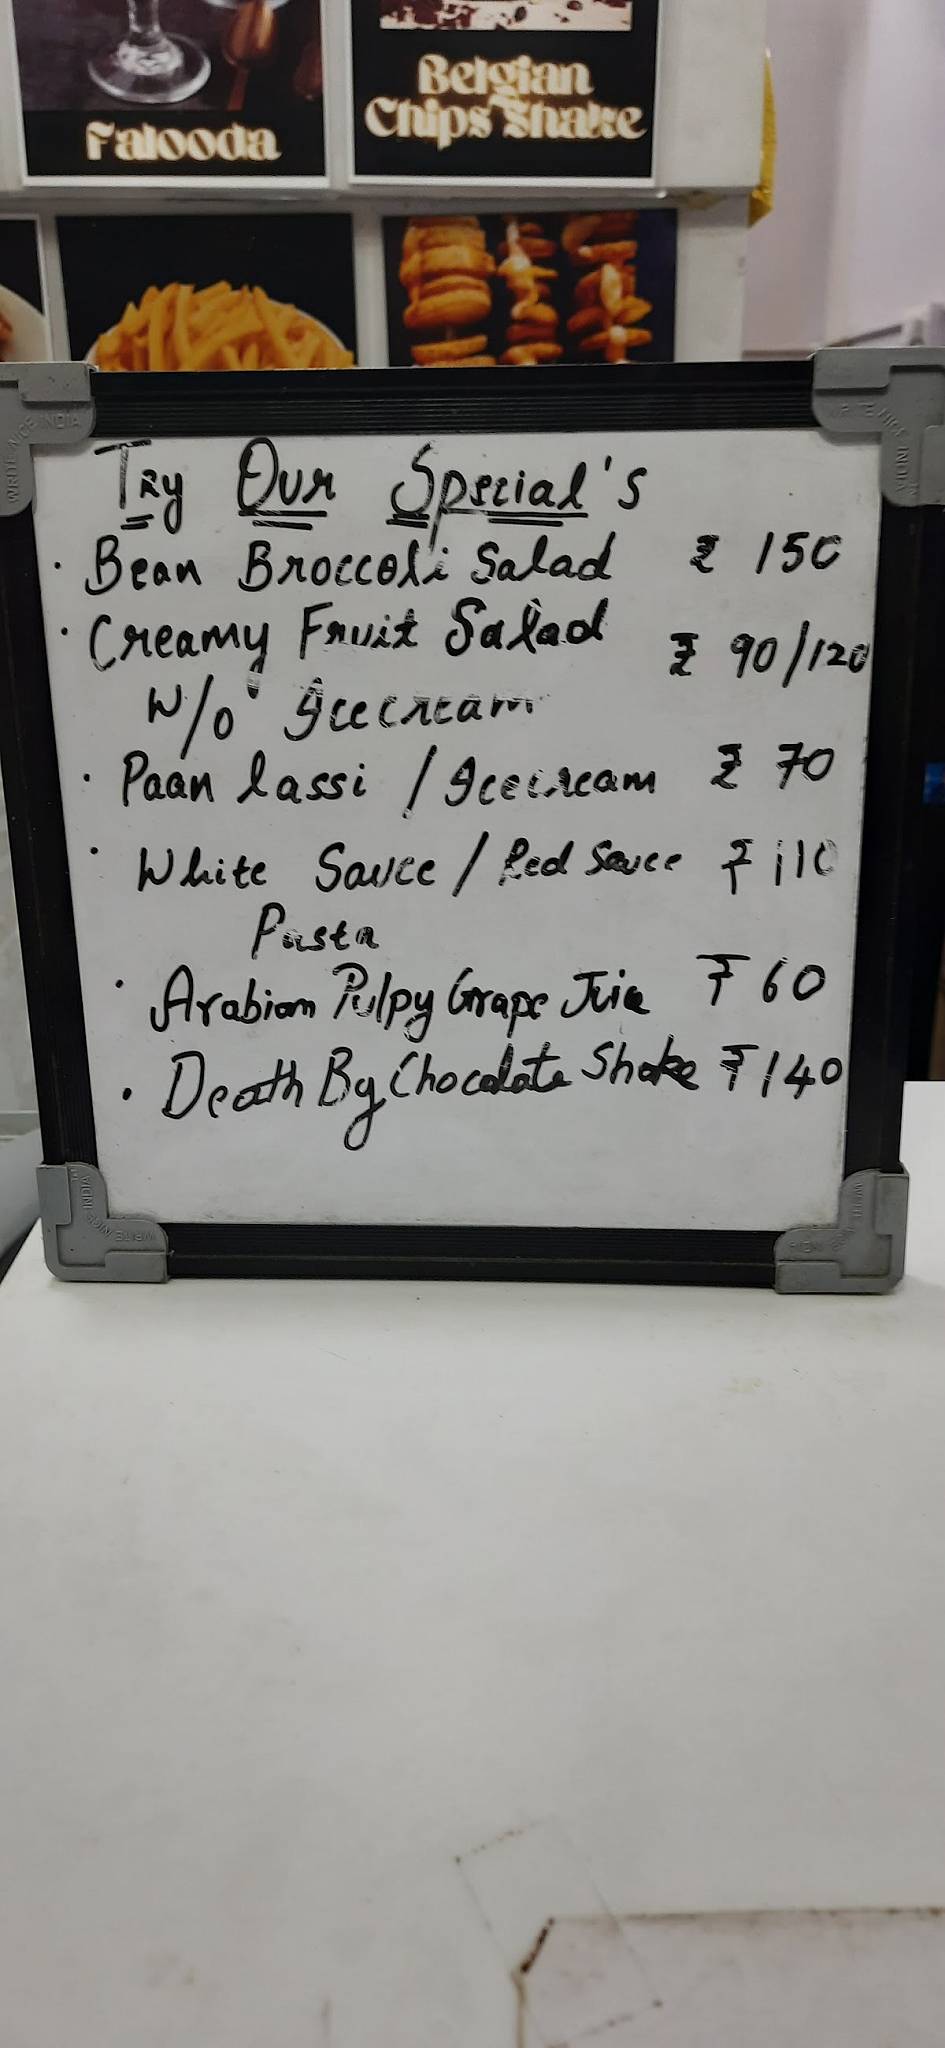 Falooda
Belgian
Chips Shake
WRITE NICE INDIA
WRITE NICE INDIA
Try Our Special's
· Bean Broccoli Salad ₹ 150
· Creamy Fruit Salad ₹ 90/120
W/O Icecream
· Paan lassi / Icecream ₹ 70
· White Sauce / Red Sauce ₹ 110
Pasta
· Arabian Pulpy Grape Juice ₹ 60
· Death By Chocolate Shake ₹ 140
WRITE NICE INDIA